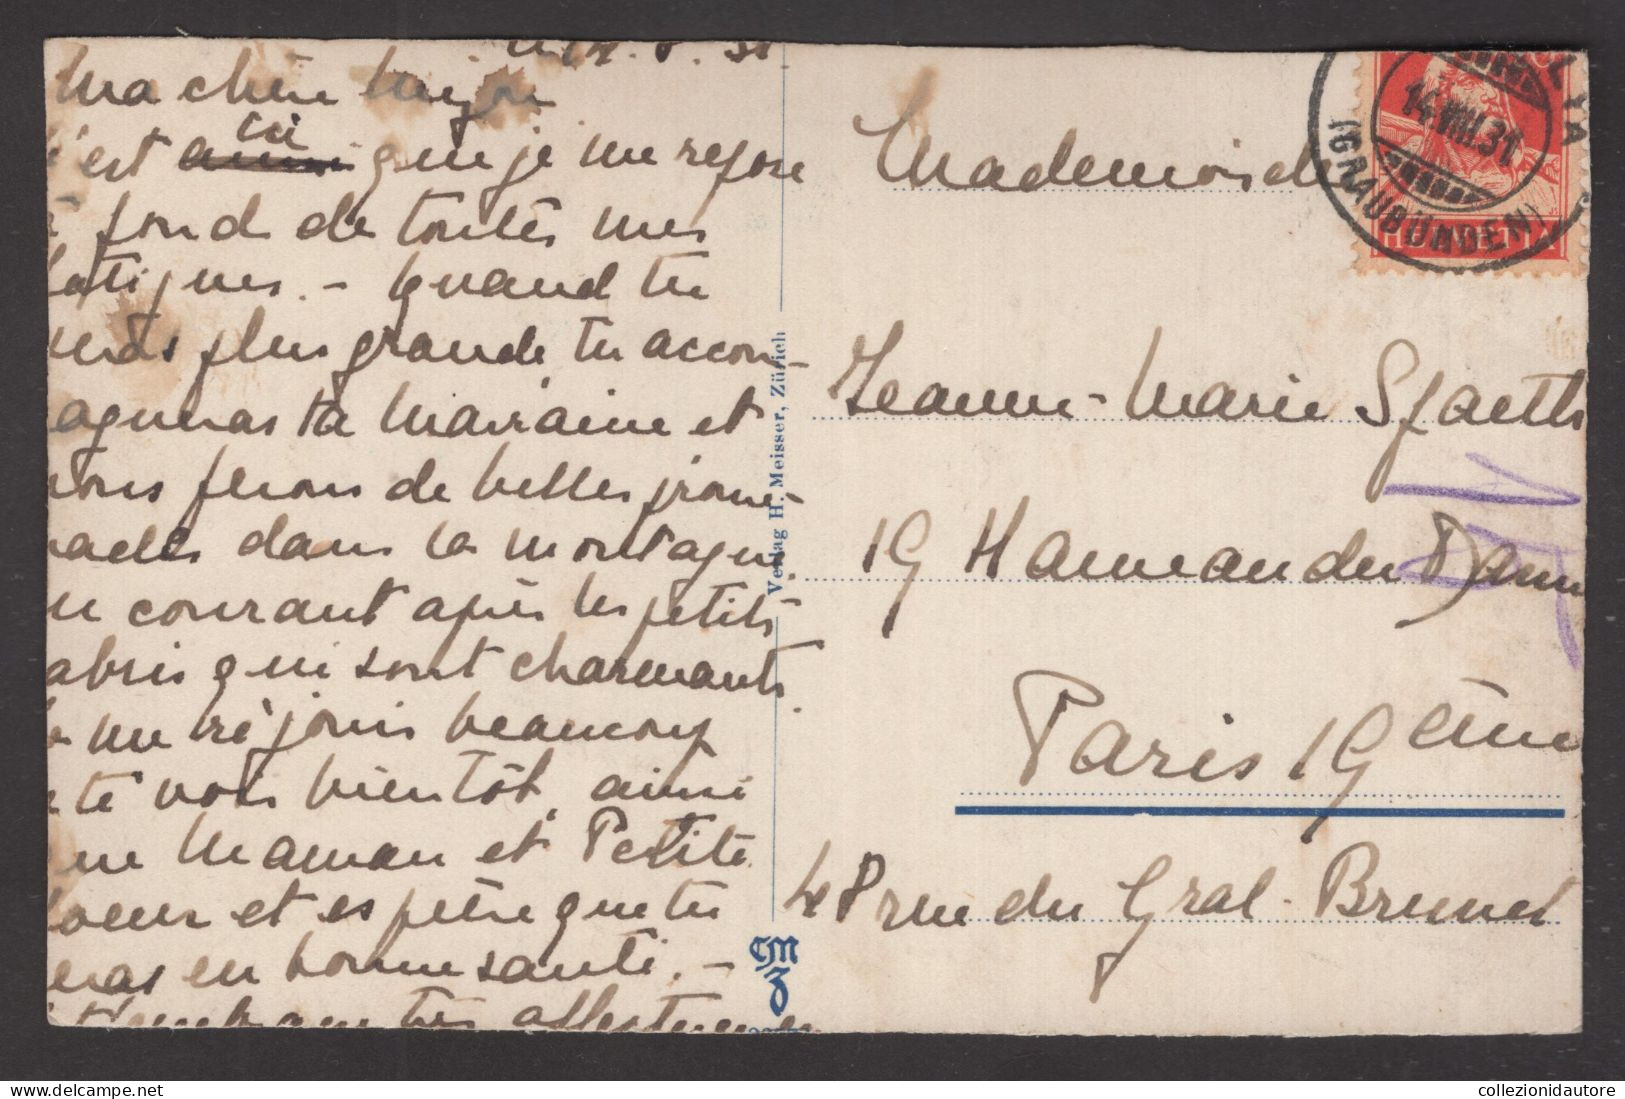 14.8.31
Ma chère
c'est ~~aussi~~ ici que je me repose
à fond de toutes mes
fatigues. – Quand tu
seras plus grande, tu accom-
pagneras ta Marraine et
nous ferons de belles prome-
nades dans la montagne.
en courant après les petits
cabris qui sont charmants.
Je me réjouis beaucoup
de te voir bientôt, ainsi
que Maman et Petite
Soeur et espère que tu
seras en bonne santé. –
t'embrasse très affectueuse
Verlag H. Meisser, Zürich
CMZ
14.VIII.31
(GRAUBÜNDEN)
HELVETIA
Mademoiselle
Jeanne-Marie Spaeth
19 Hameau du Danube
Paris 19ème
48 rue du Gral. Brunet
collezionidautore